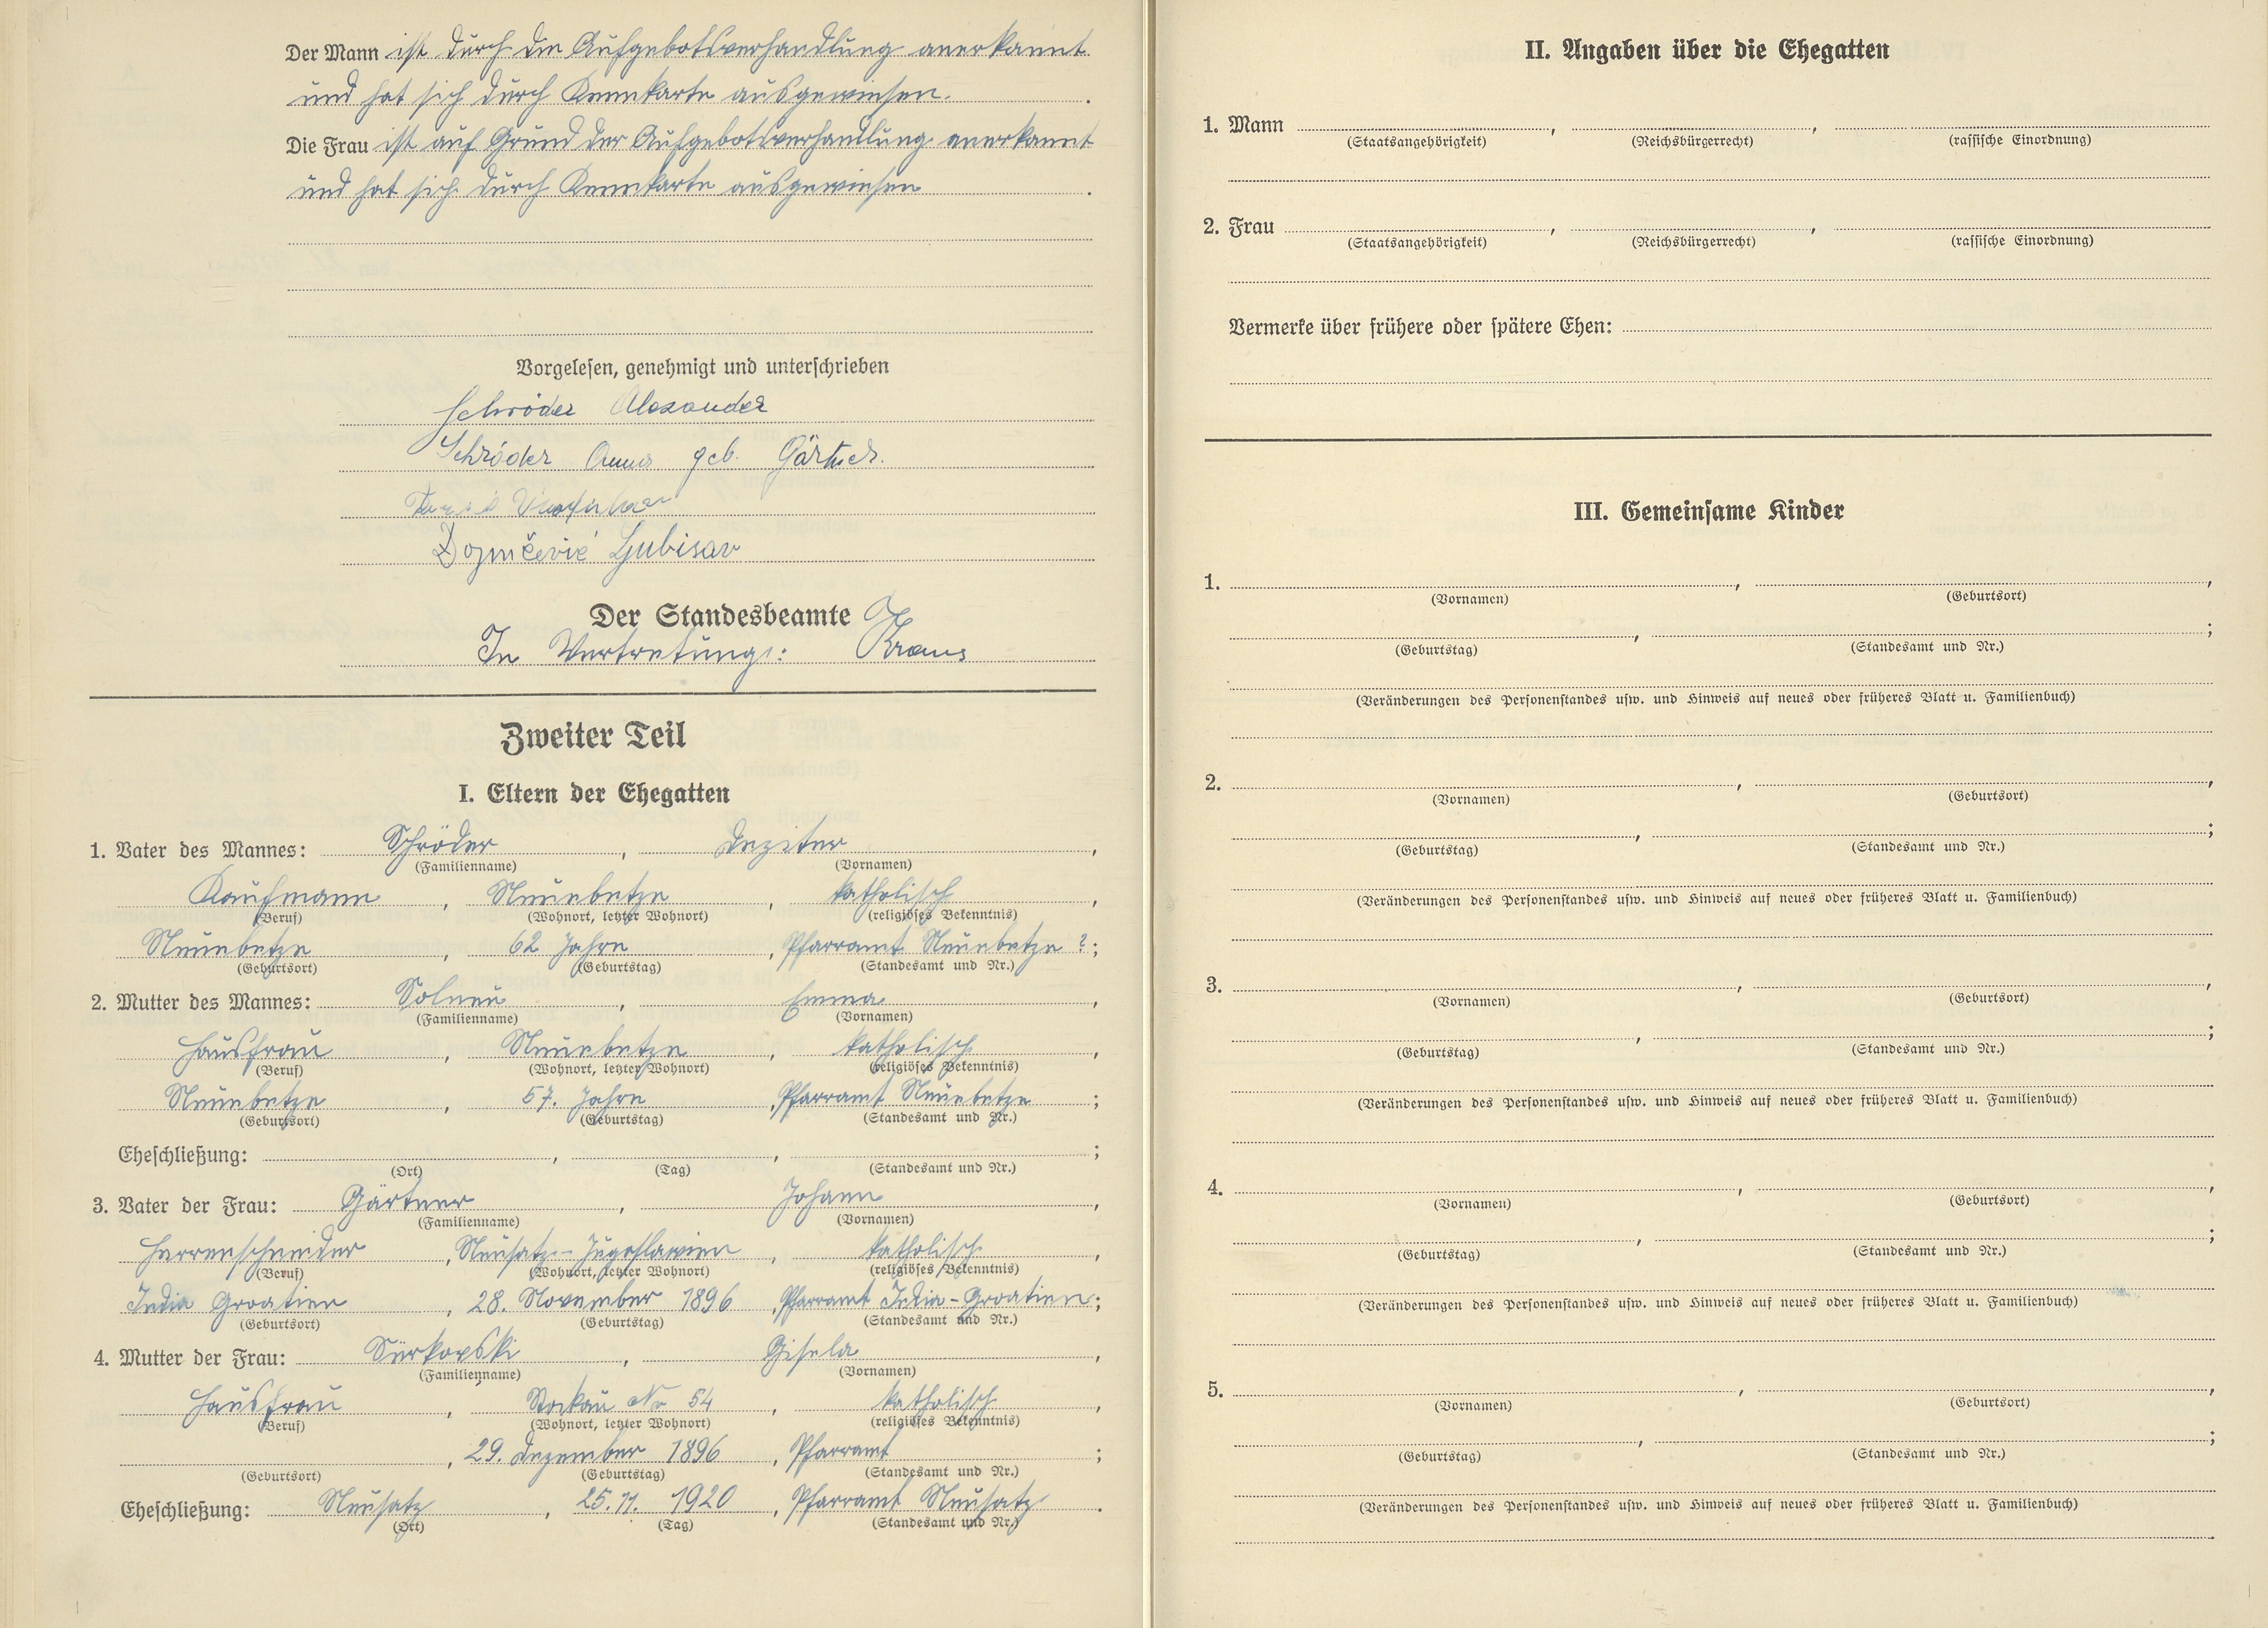 Der Mann ist durch die Aufgebotsverhandlung anerkannt
und hat sich durch Kennkarte ausgewiesen.
Die Frau ist auf Grund der Aufgebotsverhandlung anerkannt
und hat sich durch Kennkarte ausgewiesen.
Vorgelesen, genehmigt und unterschrieben
Schröder Alexander
Schröder Anna geb. Gärtner.
Ljubisav
Der Standesbeamte
In Vertretung: Kraus
Zweiter Teil
I. Eltern der Ehegatten
1. Vater des Mannes: Schröder, Deziter,
(Familienname) (Vornamen)
Kaufmann, Neuebetze, katholisch,
(Beruf) (Wohnort, letzter Wohnort) (religiöses Bekenntnis)
Neuebetze, 62 Jahre, Pfarramt Neuebetze ?;
(Geburtsort) (Geburtstag) (Standesamt und Nr.)
2. Mutter des Mannes: Solneu, Emma,
(Familienname) (Vornamen)
Hausfrau, Neuebetze, katholisch,
(Beruf) (Wohnort, letzter Wohnort) (religiöses Bekenntnis)
Neuebetze, 57. Jahre, Pfarramt Neuebetze;
(Geburtsort) (Geburtstag) (Standesamt und Nr.)
Eheschließung: , , ;
(Ort) (Tag) (Standesamt und Nr.)
3. Vater der Frau: Gärtner, Johann,
(Familienname) (Vornamen)
Herrenschneider, Neusatz-Jugoslawien, katholisch,
(Beruf) (Wohnort, letzter Wohnort) (religiöses Bekenntnis)
India Groatien, 28. November 1896, Pfarramt India-Groatien;
(Geburtsort) (Geburtstag) (Standesamt und Nr.)
4. Mutter der Frau: Surkovski, Gisela,
(Familienname) (Vornamen)
Hausfrau, Stockau No 54, katholisch,
(Beruf) (Wohnort, letzter Wohnort) (religiöses Bekenntnis)
, 29. Dezember 1896, Pfarramt;
(Geburtsort) (Geburtstag) (Standesamt und Nr.)
Eheschließung: Neusatz, 25.11. 1920, Pfarramt Neusatz.
(Ort) (Tag) (Standesamt und Nr.)
II. Angaben über die Ehegatten
1. Mann , ,
(Staatsangehörigkeit) (Reichsbürgerrecht) (rassische Einordnung)
2. Frau , ,
(Staatsangehörigkeit) (Reichsbürgerrecht) (rassische Einordnung)
Vermerke über frühere oder spätere Ehen:
III. Gemeinsame Kinder
1. , ,
(Vornamen) (Geburtsort)
, ;
(Geburtstag) (Standesamt und Nr.)
(Veränderungen des Personenstandes usw. und Hinweis auf neues oder früheres Blatt u. Familienbuch)
2. , ,
(Vornamen) (Geburtsort)
, ;
(Geburtstag) (Standesamt und Nr.)
(Veränderungen des Personenstandes usw. und Hinweis auf neues oder früheres Blatt u. Familienbuch)
3. , ,
(Vornamen) (Geburtsort)
, ;
(Geburtstag) (Standesamt und Nr.)
(Veränderungen des Personenstandes usw. und Hinweis auf neues oder früheres Blatt u. Familienbuch)
4. , ,
(Vornamen) (Geburtsort)
, ;
(Geburtstag) (Standesamt und Nr.)
(Veränderungen des Personenstandes usw. und Hinweis auf neues oder früheres Blatt u. Familienbuch)
5. , ,
(Vornamen) (Geburtsort)
, ;
(Geburtstag) (Standesamt und Nr.)
(Veränderungen des Personenstandes usw. und Hinweis auf neues oder früheres Blatt u. Familienbuch)